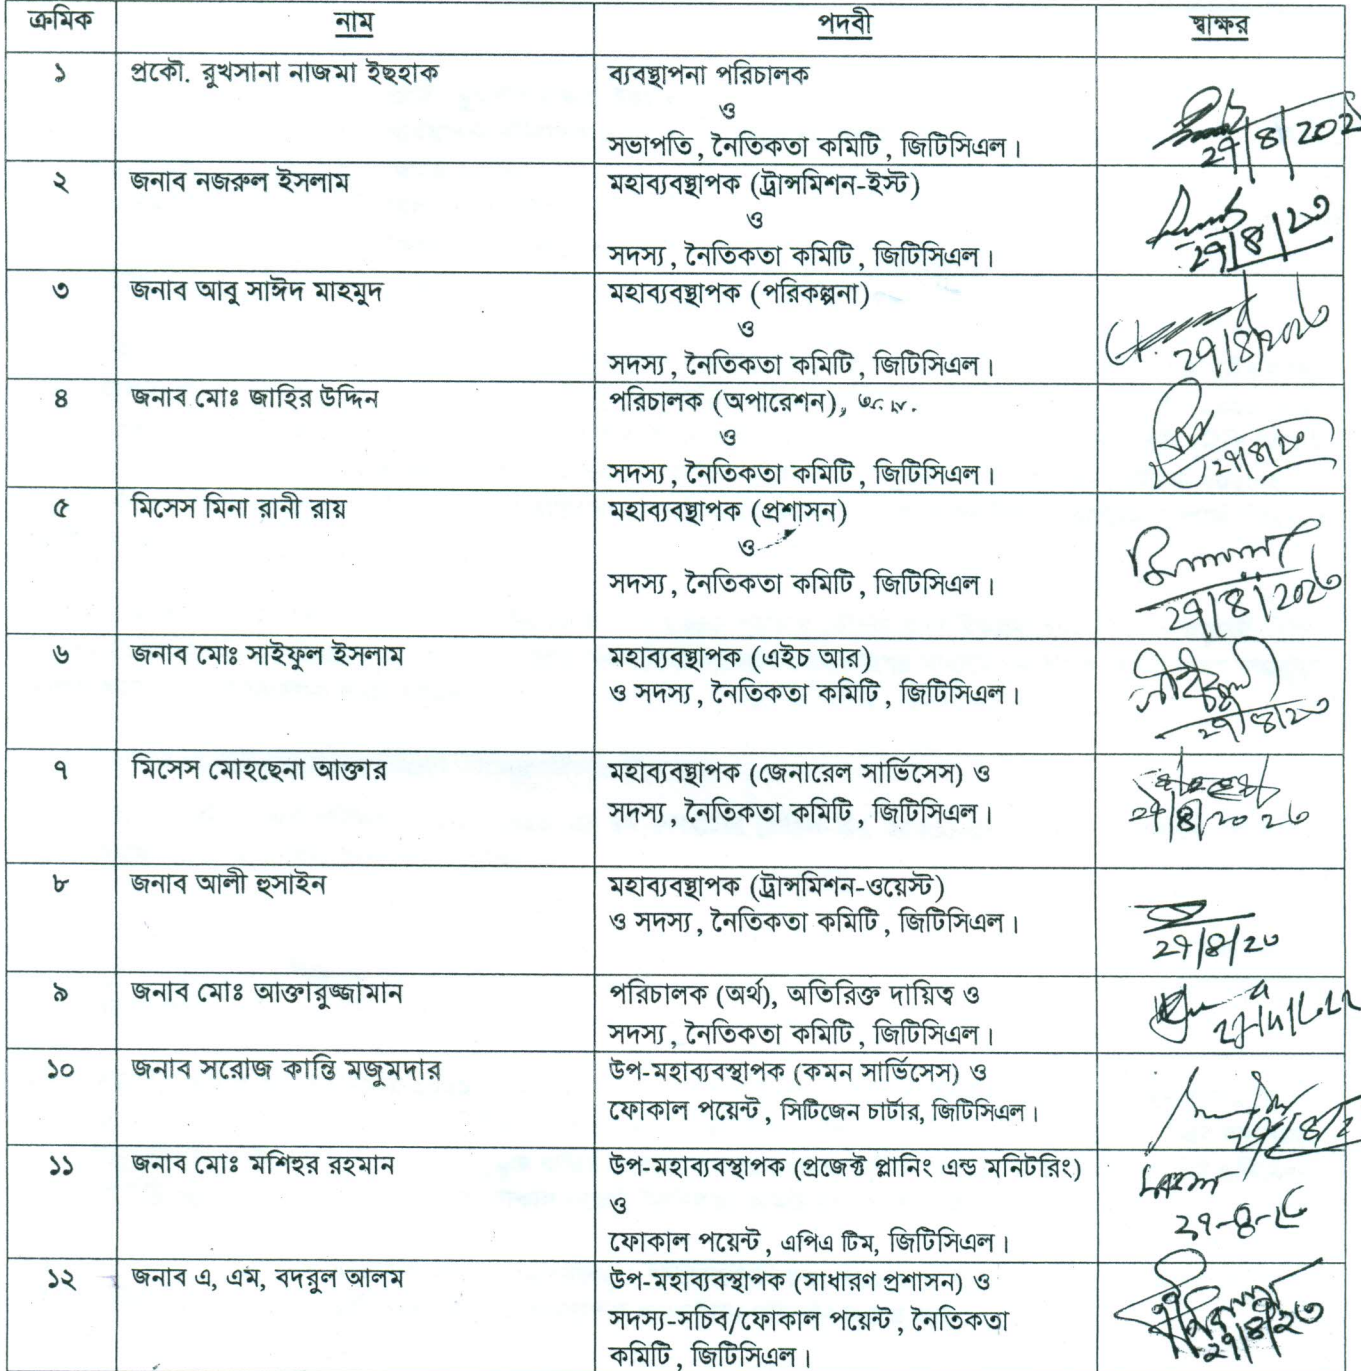 ক্রমিক নাম পদবী স্বাক্ষর
১ প্রকৌ. রুখসানা নাজমা ইছহাক ব্যবস্থাপনা পরিচালক
ও
সভাপতি, নৈতিকতা কমিটি, জিটিসিএল।
২ জনাব নজরুল ইসলাম মহাব্যবস্থাপক (ট্রান্সমিশন-ইস্ট)
ও
সদস্য, নৈতিকতা কমিটি, জিটিসিএল।
৩ জনাব আবু সাঈদ মাহমুদ মহাব্যবস্থাপক (পরিকল্পনা)
ও
সদস্য, নৈতিকতা কমিটি, জিটিসিএল।
৪ জনাব মোঃ জাহির উদ্দিন পরিচালক (অপারেশন),
ও
সদস্য, নৈতিকতা কমিটি, জিটিসিএল।
৫ মিসেস মিনা রানী রায় মহাব্যবস্থাপক (প্রশাসন)
ও
সদস্য, নৈতিকতা কমিটি, জিটিসিএল।
৬ জনাব মোঃ সাইফুল ইসলাম মহাব্যবস্থাপক (এইচ আর)
ও সদস্য, নৈতিকতা কমিটি, জিটিসিএল।
৭ মিসেস মোহছেনা আক্তার মহাব্যবস্থাপক (জেনারেল সার্ভিসেস) ও
সদস্য, নৈতিকতা কমিটি, জিটিসিএল।
৮ জনাব আলী হুসাইন মহাব্যবস্থাপক (ট্রান্সমিশন-ওয়েস্ট)
ও সদস্য, নৈতিকতা কমিটি, জিটিসিএল।
৯ জনাব মোঃ আক্তারুজ্জামান পরিচালক (অর্থ), অতিরিক্ত দায়িত্ব ও
সদস্য, নৈতিকতা কমিটি, জিটিসিএল।
১০ জনাব সরোজ কান্তি মজুমদার উপ-মহাব্যবস্থাপক (কমন সার্ভিসেস) ও
ফোকাল পয়েন্ট, সিটিজেন চার্টার, জিটিসিএল।
১১ জনাব মোঃ মশিহুর রহমান উপ-মহাব্যবস্থাপক (প্রজেক্ট প্লানিং এন্ড মনিটরিং)
ও
ফোকাল পয়েন্ট, এপিএ টিম, জিটিসিএল।
১২ জনাব এ, এম, বদরুল আলম উপ-মহাব্যবস্থাপক (সাধারণ প্রশাসন) ও
সদস্য-সচিব/ফোকাল পয়েন্ট, নৈতিকতা
কমিটি, জিটিসিএল।